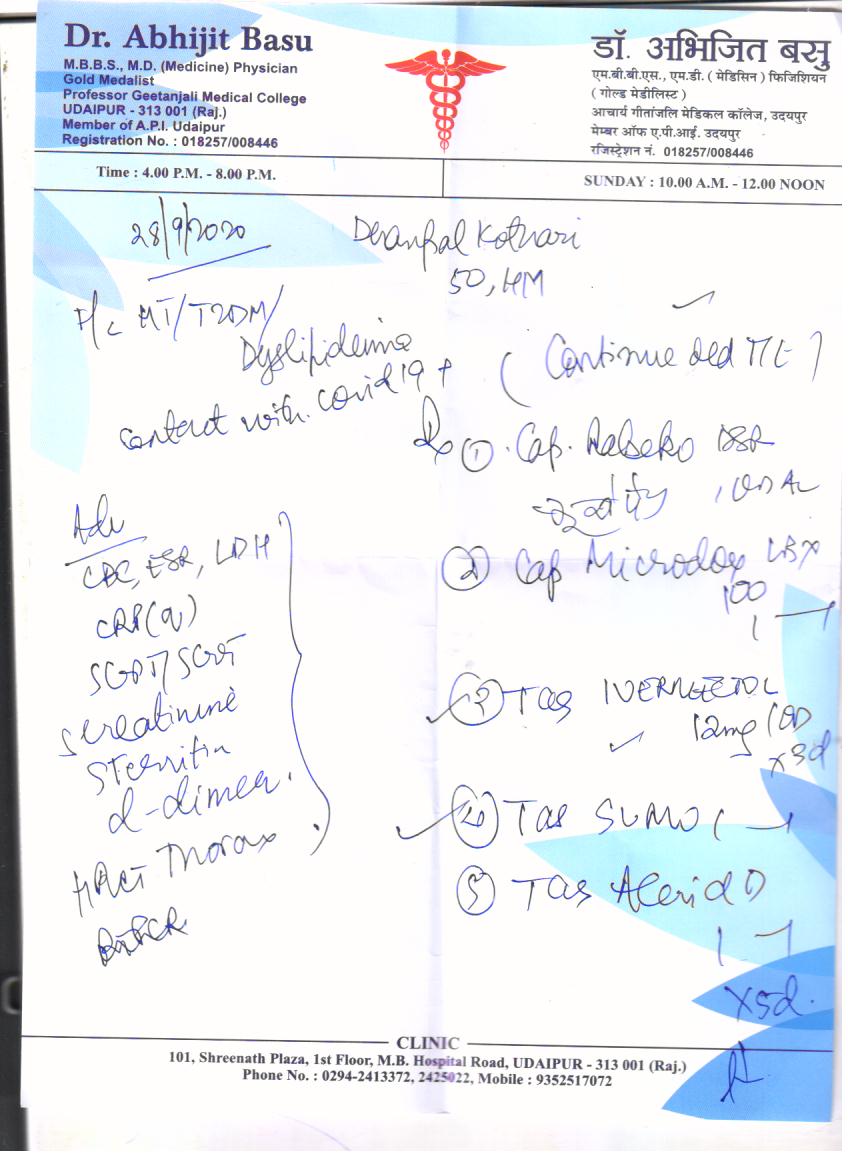 Dr. Abhijit Basu
M.B.B.S., M.D. (Medicine) Physician
Gold Medalist
Professor Geetanjali Medical College
UDAIPUR - 313 001 (Raj.)
Member of A.P.I. Udaipur
Registration No. : 018257/008446
डॉ. अभिजित बसु
एम.बी.बी.एस., एम.डी. ( मेडिसिन ) फिजिशियन
( गोल्ड मेडीलिस्ट )
आचार्य गीतांजलि मेडिकल कॉलेज, उदयपुर
मेम्बर ऑफ ए.पी.आई. उदयपुर
रजिस्ट्रेशन नं. 018257/008446
Time : 4.00 P.M. - 8.00 P.M.
SUNDAY : 10.00 A.M. - 12.00 NOON
28/9/2020
Kothari
50,
HT/T2DM/
Dyslipidemia
contact with covid19 +
(Continue old
Rx ① Cap.
DSR
② Cap Microdox LBX
100
1
③ Tab IVERMECTOL
12mg 1OD
x3d
④ Tab SUMO 1
⑤ Tab Alerid D
1
x5d.
Adv
CBC, ESR, LDH
CRP(q)
SGPT/SGOT
S creatinine
S Ferritin
d-dimer.
HRCT Thorax
RTPCR
CLINIC
101, Shreenath Plaza, 1st Floor, M.B. Hospital Road, UDAIPUR - 313 001 (Raj.)
Phone No. : 0294-2413372, 2425022, Mobile : 9352517072